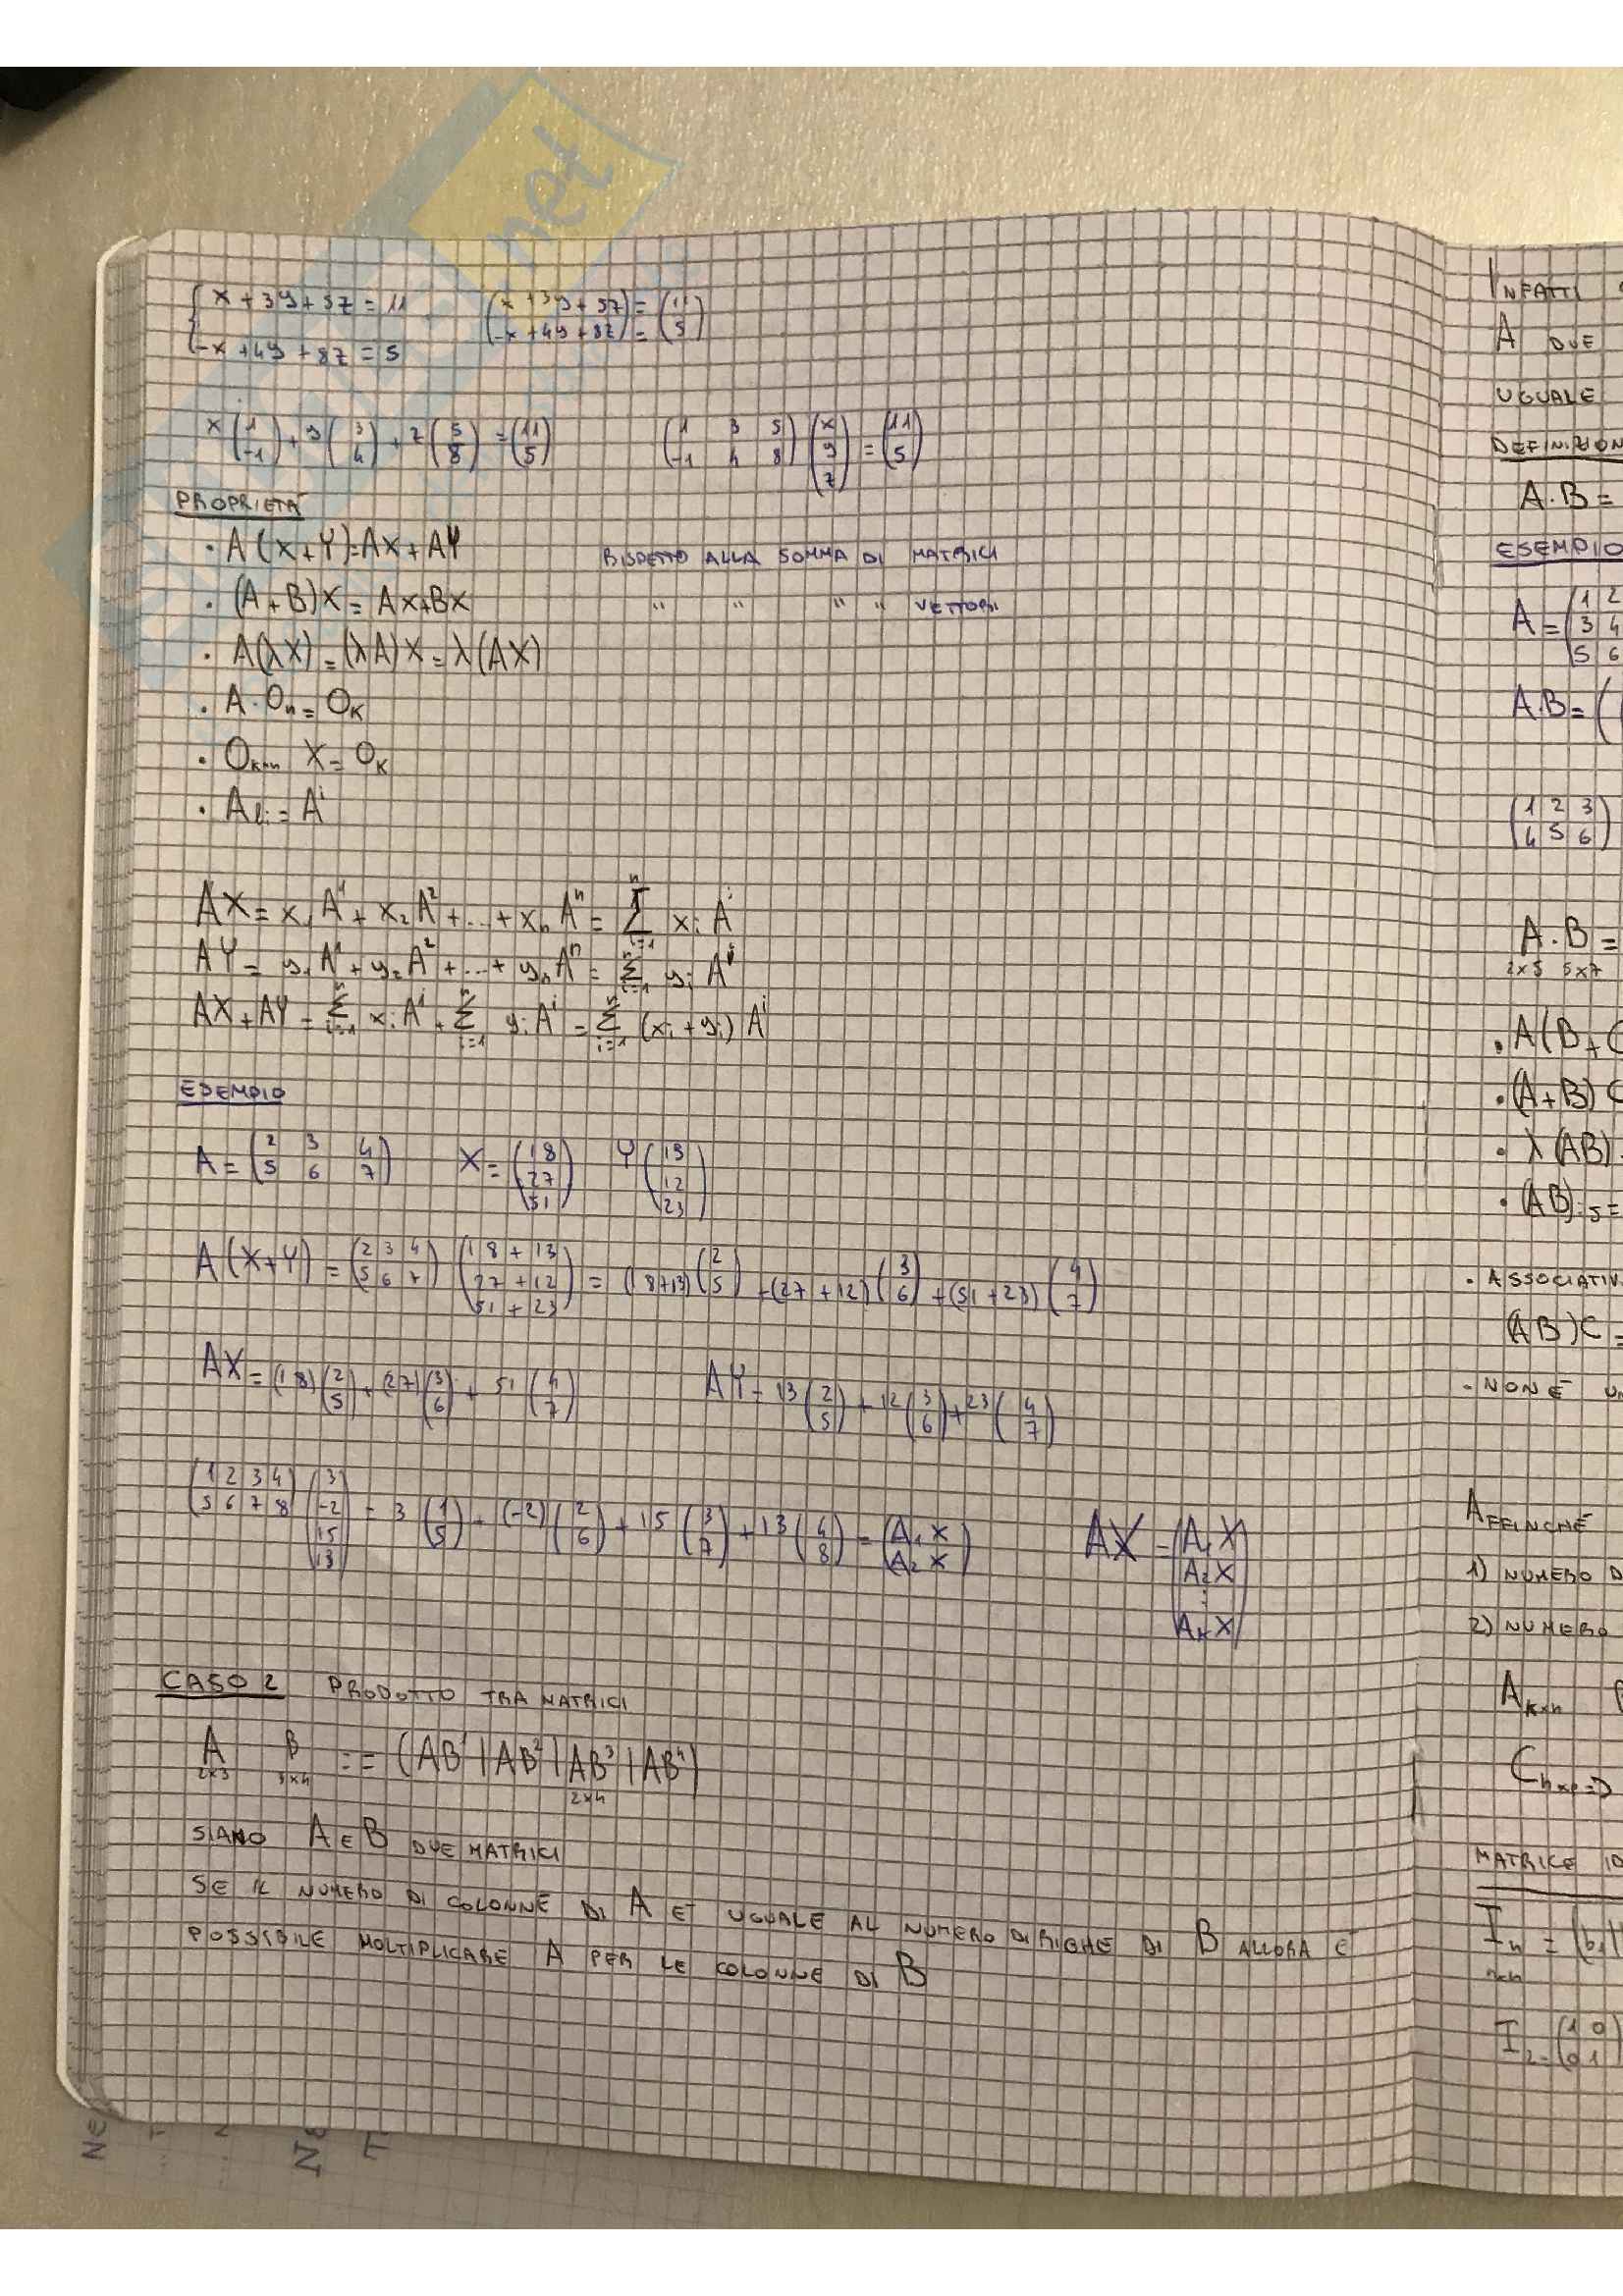 x + 3y + 5z = 11
-x + 4y + 8z = 5
(x + 3y + 5z) = (11)
(-x + 4y + 8z) = (5)
x (1 -1) + y (3 4) + z (5 8) = (11 5)
(1 3 5 / -1 4 8) (x y z) = (11 5)
PROPRIETÀ
· A (X+Y)=AX+AY RISPETTO ALLA SOMMA DI MATRICI
· (A+B)X = AX+BX " " " " VETTORI
· A(λX) = (λA)X = λ(AX)
· A·On = OK
· Okxn X = OK
· A ei = Aⁱ
AX = x₁A¹ + x₂A² + ... + xₙAⁿ = Σ xᵢ Aⁱ
AY = y₁A¹ + y₂A² + ... + yₙAⁿ = Σ yᵢ Aⁱ
AX + AY = Σ xᵢAⁱ + Σ yᵢAⁱ = Σ (xᵢ + yᵢ) Aⁱ
ESEMPIO
A = (2 3 4 / 5 6 7) X = (18 27 51) Y (13 12 23)
A(X+Y) = (2 3 4 / 5 6 7) (18+13 / 27+12 / 51+23) = (18+13)(2 5) + (27+12)(3 6) + (51+23)(4 7)
AX = (18)(2 5) + (27)(3 6) + 51 (4 7) AY = 13(2 5) + 12(3 6) + 23(4 7)
(1 2 3 4 / 5 6 7 8) (3 -2 15 13) = 3 (1 5) - (-2)(2 6) + 15 (3 7) + 13 (4 8) = (A₁X A₂X) AX = (A₁X A₂X ⋮ AₖX)
CASO 2 PRODOTTO TRA MATRICI
A B := (AB¹|AB²|AB³|AB⁴)
2x3 3x4 2x4
SIANO A E B DUE MATRICI
SE IL NUMERO DI COLONNE DI A E' UGUALE AL NUMERO DI RIGHE DI B ALLORA E'
POSSIBILE MOLTIPLICARE A PER LE COLONNE DI B
INFATTI
A DUE
UGUALE
DEFINIZION
A·B =
ESEMPIO
A = (1 2
3 4
5 6
A·B = (
(1 2 3)
(4 5 6)
A·B =
2x5 5x7
· A(B+C
· (A+B)C
· λ(AB)
· (AB)
· ASSOCIATIV
(AB)C =
· NON È UN
AFFINCHÉ
1) NUMERO D
2) NUMERO
Akxn
MATRICE ID
In =
nxn
I2 = (1 0
0 1
net